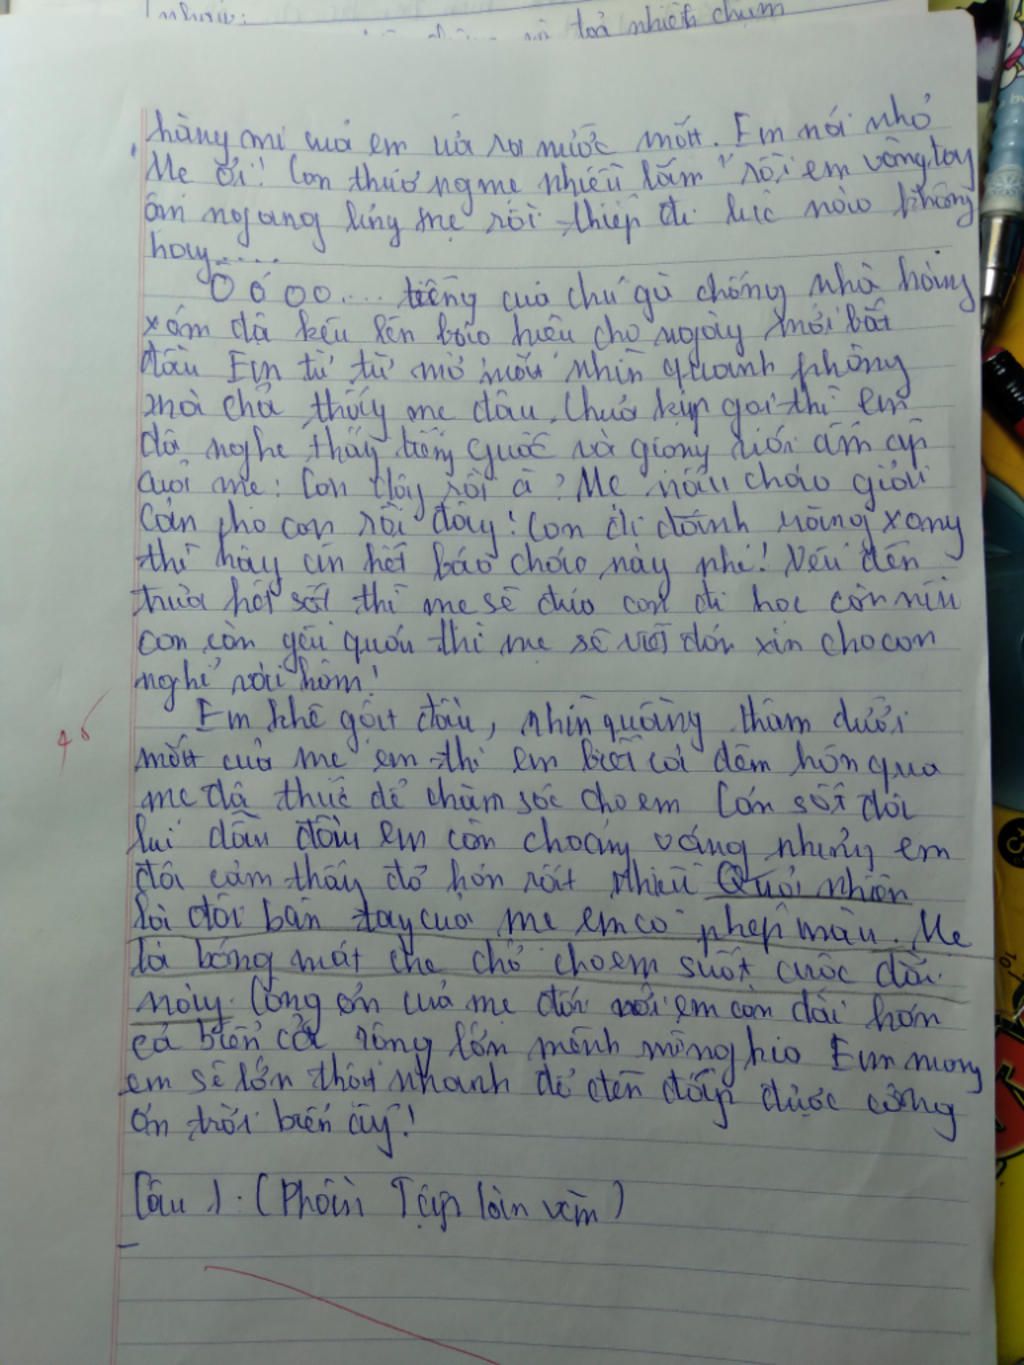 toả nhiên chùm
hàng mi của em ứa ra nước mắt. Em nói nhỏ
"Mẹ ơi! Con thương mẹ nhiều lắm" rồi em vòng tay
ôm ngang lưng mẹ rồi thiếp đi lúc nào không
hay....
Ò ó oo.... tiếng của chú gà chống nhà hàng
xóm đã kêu lên báo hiệu cho ngày mới bắt
đầu Em từ từ mở mắt nhìn quanh phòng
mà chả thấy mẹ đâu. Chưa kịp gọi thì em
đã nghe thấy tiếng guốc và giọng nói ấm áp
của mẹ: Con dậy rồi à? Mẹ nấu cháo giải
cảm cho con rồi đây! Con đi đánh răng xong
thì hãy ăn hết bát cháo này nhé! Nếu đến
trưa hết sốt thì mẹ sẽ đưa con đi học còn nếu
con còn yếu quá thì mẹ sẽ viết đơn xin cho con
nghỉ vài hôm!
Em khẽ gật đầu, nhìn quầng thâm dưới
mắt của mẹ em thì em biết cả đêm hôm qua
mẹ đã thức để chăm sóc cho em Cơn sốt đã
lui dần đầu em còn choáng váng nhưng em
đã cảm thấy đỡ hơn rất nhiều Quả nhiên
là đôi bàn tay của mẹ em có phép màu. Mẹ
là bóng mát che chở cho em suốt cuộc đời
này. Công ơn của mẹ đối với em còn dài hơn
cả biển cả rộng lớn mênh mông kia Em mong
em sẽ lớn thật nhanh để đền đáp được công
ơn trời biển ấy!
Câu 1: (Phần Tập làm văn)